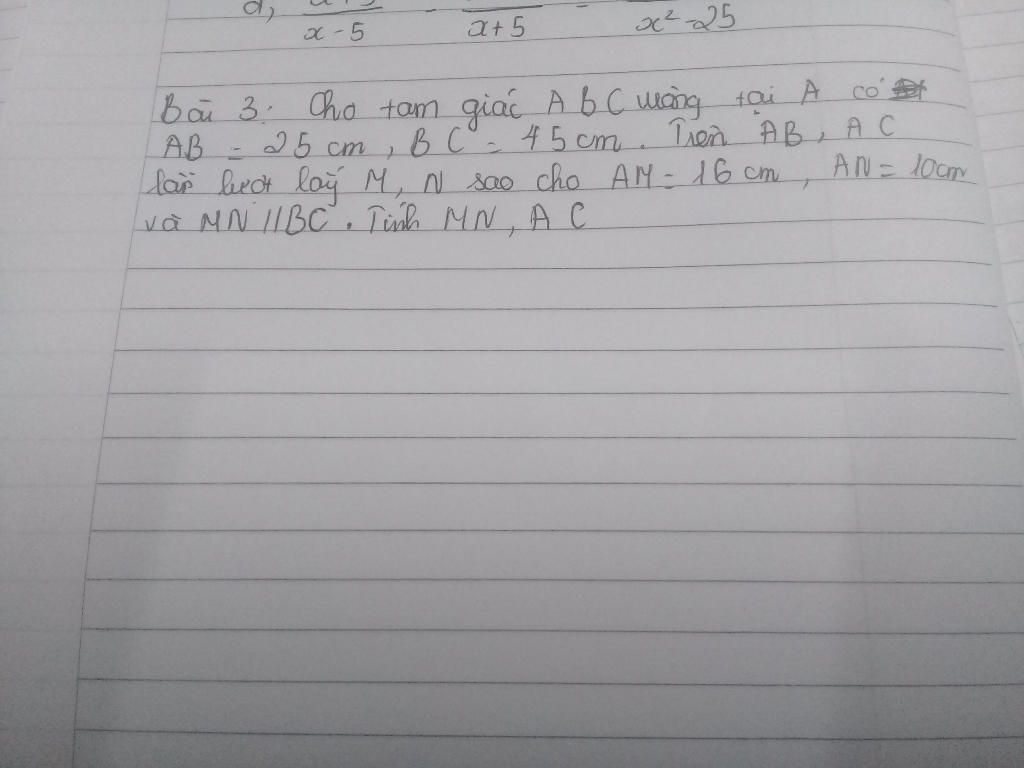 d,
x - 5 x + 5 x² - 25
Bài 3: Cho tam giác ABC vuông tại A có
AB = 25 cm, BC = 45 cm. Trên AB, AC
lần lượt lấy M, N sao cho AM = 16 cm, AN = 10cm
và MN // BC. Tính MN, AC